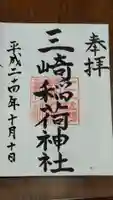 奉拝
三崎稲荷神社
平成二十四年十月十日